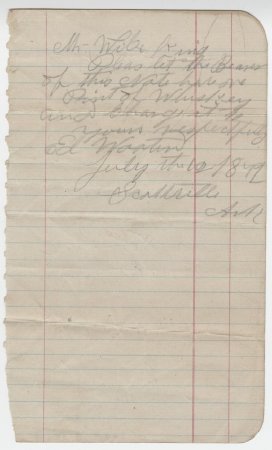 Mr Wiks King
Pleas let the Bearer
of this Note have one
Pint of Whiskey
and charge it to
yours respectfuly
Ed
July th 10 18
Scottsville
Ark